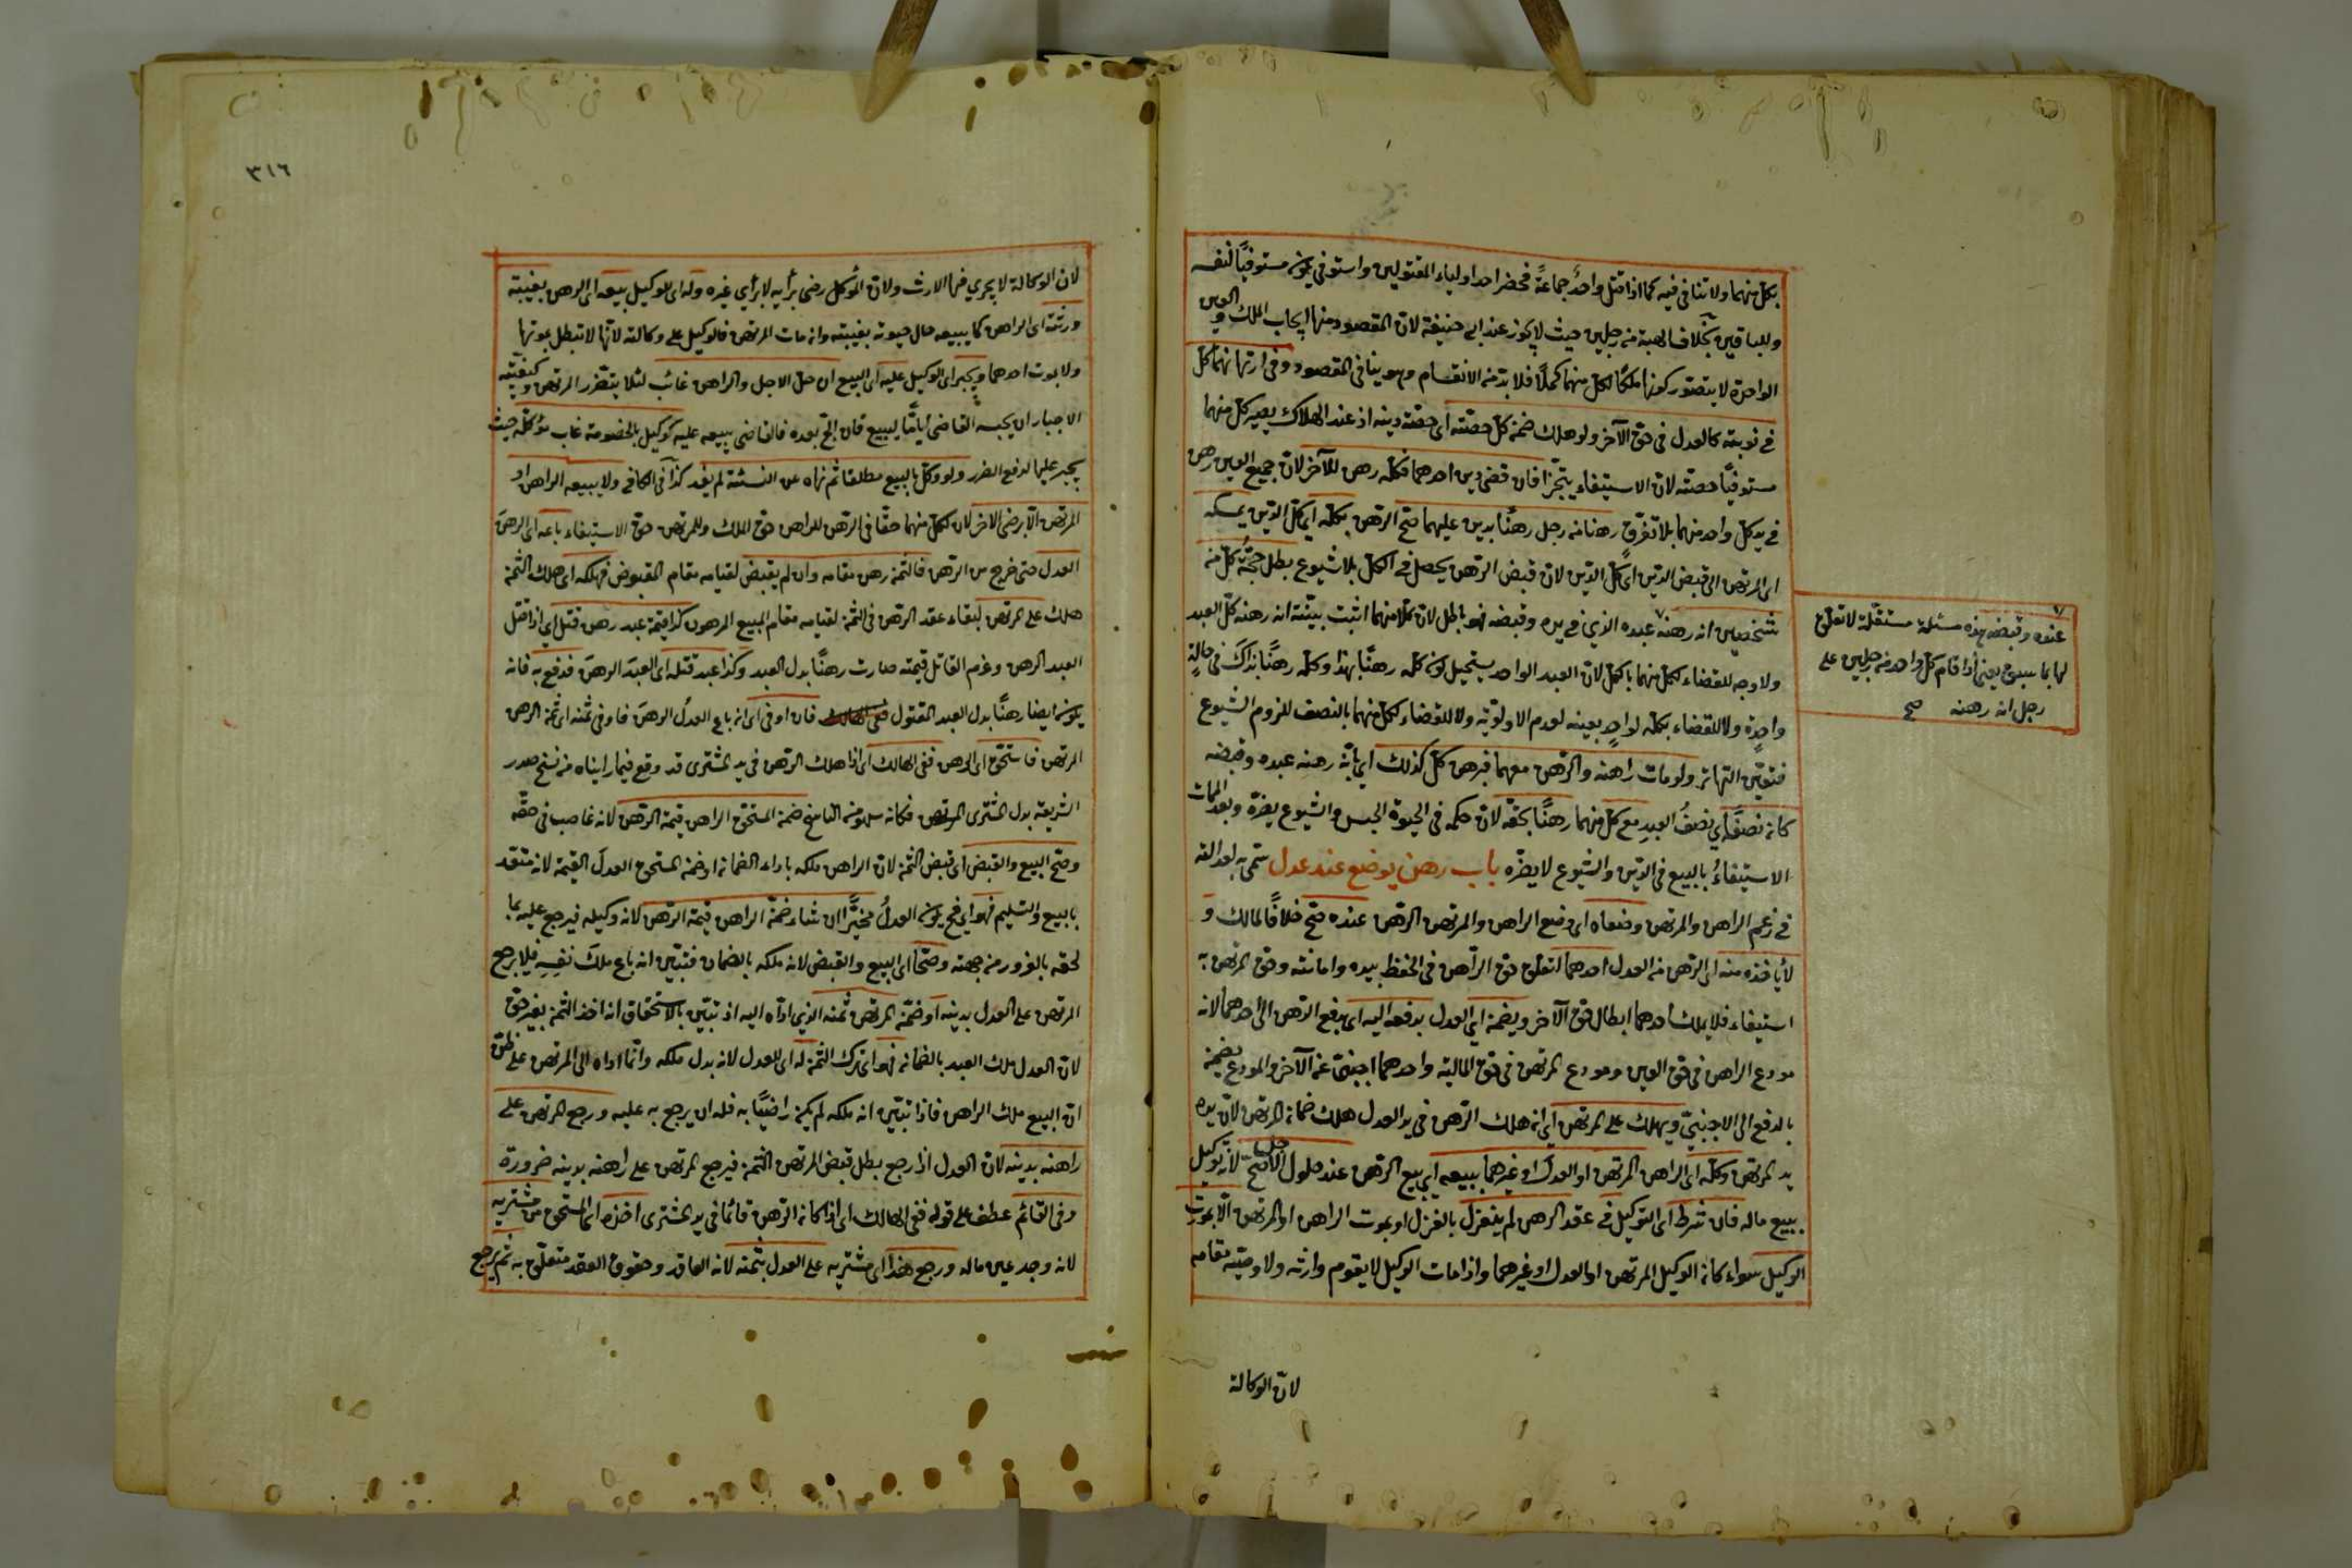 بكل منهما ولا تنافى فيه كما اذا قتل واحدٌ جماعةً فحضر احد اولياء المقتولين واستوفى يكون مستوفيًا لنفسه
وللباقين بخلاف الهبة من رجلين حيث لا يجوز عند ابى حنيفة لان المقصود منها ايجاب الملك والعين
الواحدة لا يتصور كونها ملكًا لكل منهما كملًا فلا بد من الانقسام وهو ينافى المقصود وفى ارتهانهما كل
فى نوبته كالعدل فى حق الآخر ولو هلك ضمن كل حصته اى حصة دينه اذ عند الهلاك يصير كل منهما
مستوفيًا حصته لان الاستيفاء يتجزا فان قضى دين احدهما فكله رهن للآخر لان جميع العين رهن
فى يد كل واحد منهما بلا تفرق رهنا من رجل رهنًا بدين عليهما صح الرهن بكله اى كل الدين يمسكه
اى المرتهن الى قبض الدين اى كل الدين لان قبض الرهن يحصل فى الكل بلا شيوع بطل حجة كل من
شخصين انه رهنه عبده الذى فى يده وقبضه فهو باطل لان كلا منهما اثبت ببينته انه رهنه كل العبد
ولا وجه للقضاء لكل منهما بالكل لان العبد الواحد يستحيل كون كله رهنًا بهذا وكله رهنًا بذاك فى حالةٍ
واحدةٍ ولا للقضاء بكله لواحدٍ بعينه لعدم الاولوية ولا للقضاء لكل منهما بالنصف للزوم الشيوع
فتعين التهاتر ولو مات راهنه والرهن معهما فبرهن كل كذلك اى بانه رهنه عبده وقبضه
كان نصفه اى نصفُ العبدِ مع كل منهما رهنًا بحقه لان حكمه فى الحيوة الحبس والشيوع يضره وبعد الممات
الاستيفاءُ بالبيع فى الدين والشيوع لا يضره باب رهن يوضع عند عدل سمى به لعدالته
فى زعم الراهن والمرتهن وضعاه اى وضع الراهن والمرتهن الرهن عنده صح خلافًا لمالك و
لا ياخذه منه اى الرهن من العدل احدهما لتعلق حق الراهن فى الحفظ بيده وامانته وحق المرتهن به
استيفاء فلا يملك احدهما ابطال حق الآخر ويضمن اى العدل بدفعه اليه اى بدفع الرهن الى احدهما لانه
مودع الراهن فى حق العين ومودع المرتهن فى حق المالية واحدهما اجنبى عن الآخر والمودع يضمن
بالدفع الى الاجنبى ويهلك على المرتهن اى ان هلك الرهن فى يد العدل هلك ضمان المرتهن لان يده
يد المرتهن وكله اى الراهن المرتهن او العدل او غيرهما ببيعه اى بيع الرهن عند حلول الاجل صح لانه توكيل
ببيع ماله فان شرط اى التوكيل فى عقد الرهن لم ينعزل بالعزل او بموت الراهن او المرتهن الا بموت
الوكيل سواء كان الوكيل المرتهن او العدل او غيرهما واذا مات الوكيل لا يقوم وارثه ولا وصيته مقامه
لان الوكالة
عنده وقبضه هذه مسئلة مستقلة لا تعلق
لها بما سبق يعنى اذا اقام كل واحد من رجلين على
رجل انه رهنه صح
٣١٦
لان الوكالة لا يجرى فيها الارث ولان الموكل رضى برأيه لا برأى غيره وله اى للوكيل بيعه اى الرهن بغيبته
ورثته اى الراهن كما يبيعه حال حيوته بغيبته وان مات المرتهن فالوكيل على وكالته لانها لا تبطل بموتها
ولا بموت احدهما ويجبر اى الوكيل عليه اى البيع ان حل الاجل والراهن غائب لئلا يتضرر المرتهن وكيفيته
الاجبار ان يحبسه القاضى اياما ليبيع فان لج بعده فالقاضى يبيعه عليه كوكيل بالخصومة غاب موكله حيث
يجبر عليها لدفع الضرر ولو وكل بالبيع مطلقا ثم نهاه عن النسئة لم يفد كذا فى الكافى ولا يبيعه الراهن او
المرتهن الا برضى الاخر لان لكل منهما حقًا فى الرهن للراهن حق الملك وللمرتهن حق الاستيفاء باعه اى الرهنَ
العدل حتى خرج من الرهن فالثمن رهن مقامه وان لم يقبض لقيامه مقام المقبوض فهلكه اى هلك الثمن
هلك على المرتهن لبقاء عقد الرهن فى الثمن لقيامه مقام المبيع المرهون كذا قيمة عبد رهن قتل اى اذا قتل
العبد الرهن وغرم القاتل قيمته صارت رهنًا بدل العبد وكذا عبد قتله اى العبدَ الرهنَ فدفع به فانه
يكون ايضا رهنًا بدل العبد المقتول فان اوفى اى ان باع العدلُ الرهنَ فاوفى ثمنه اى ثمن الرهن
المرتهن فاستحق اى الرهن ففى الهالك اى اذا هلك الرهن فى يد المشترى قد وقع فيما رايناه من نسخ صدر
الشريعة بدل المشترى المرتهن فكانه سهو من الناسخ ضمن المستحق الراهن قيمة الرهن لانه غاصب فى حقه
وصح البيع والقبض اى قبض الثمن لان الراهن ملكه باداء الضمان او ضمن المستحق العدلَ القيمة لانه متعد
بالبيع والتسليم فهو اى فح يكون العدلُ مخيرًا ان شاء ضمن الراهن قيمة الرهن لانه وكيله فيرجع عليه بما
لحقه بالغرور من جهته وصحا اى البيع والقبض لانه ملكه بالضمان فتبين انه باع ملك نفسه فلا يرجع
المرتهن على العدل بدينه او ضمن المرتهن ثمنه الذى اداه اليه اذ تبين بالاستحقاق انه اخذ الثمن بغير حق
لان العدل ملك العبد بالضمان فهو اى ذلك الثمن له اى للعدل لانه بدل ملكه وانما اداه الى المرتهن على ظن
ان البيع ملك الراهن فاذا تبين انه ملكه لم يكن راضيًا به فله ان يرجع به عليه ورجع المرتهن على
راهنه بدينه لان العدل اذا رجع بطل قبض المرتهن الثمن فيرجع المرتهن على راهنه بدينه ضرورة
وفى القائم عطف على قوله ففى الهالك اى اذا كان الرهن قائما فى يد المشترى اخذه اى المستحق من مشتريه
لانه وجد عين ماله ورجع هذا اى مشتريه على العدل بثمنه لانه العاقد وحقوق العقد متعلق به ثم يرجع